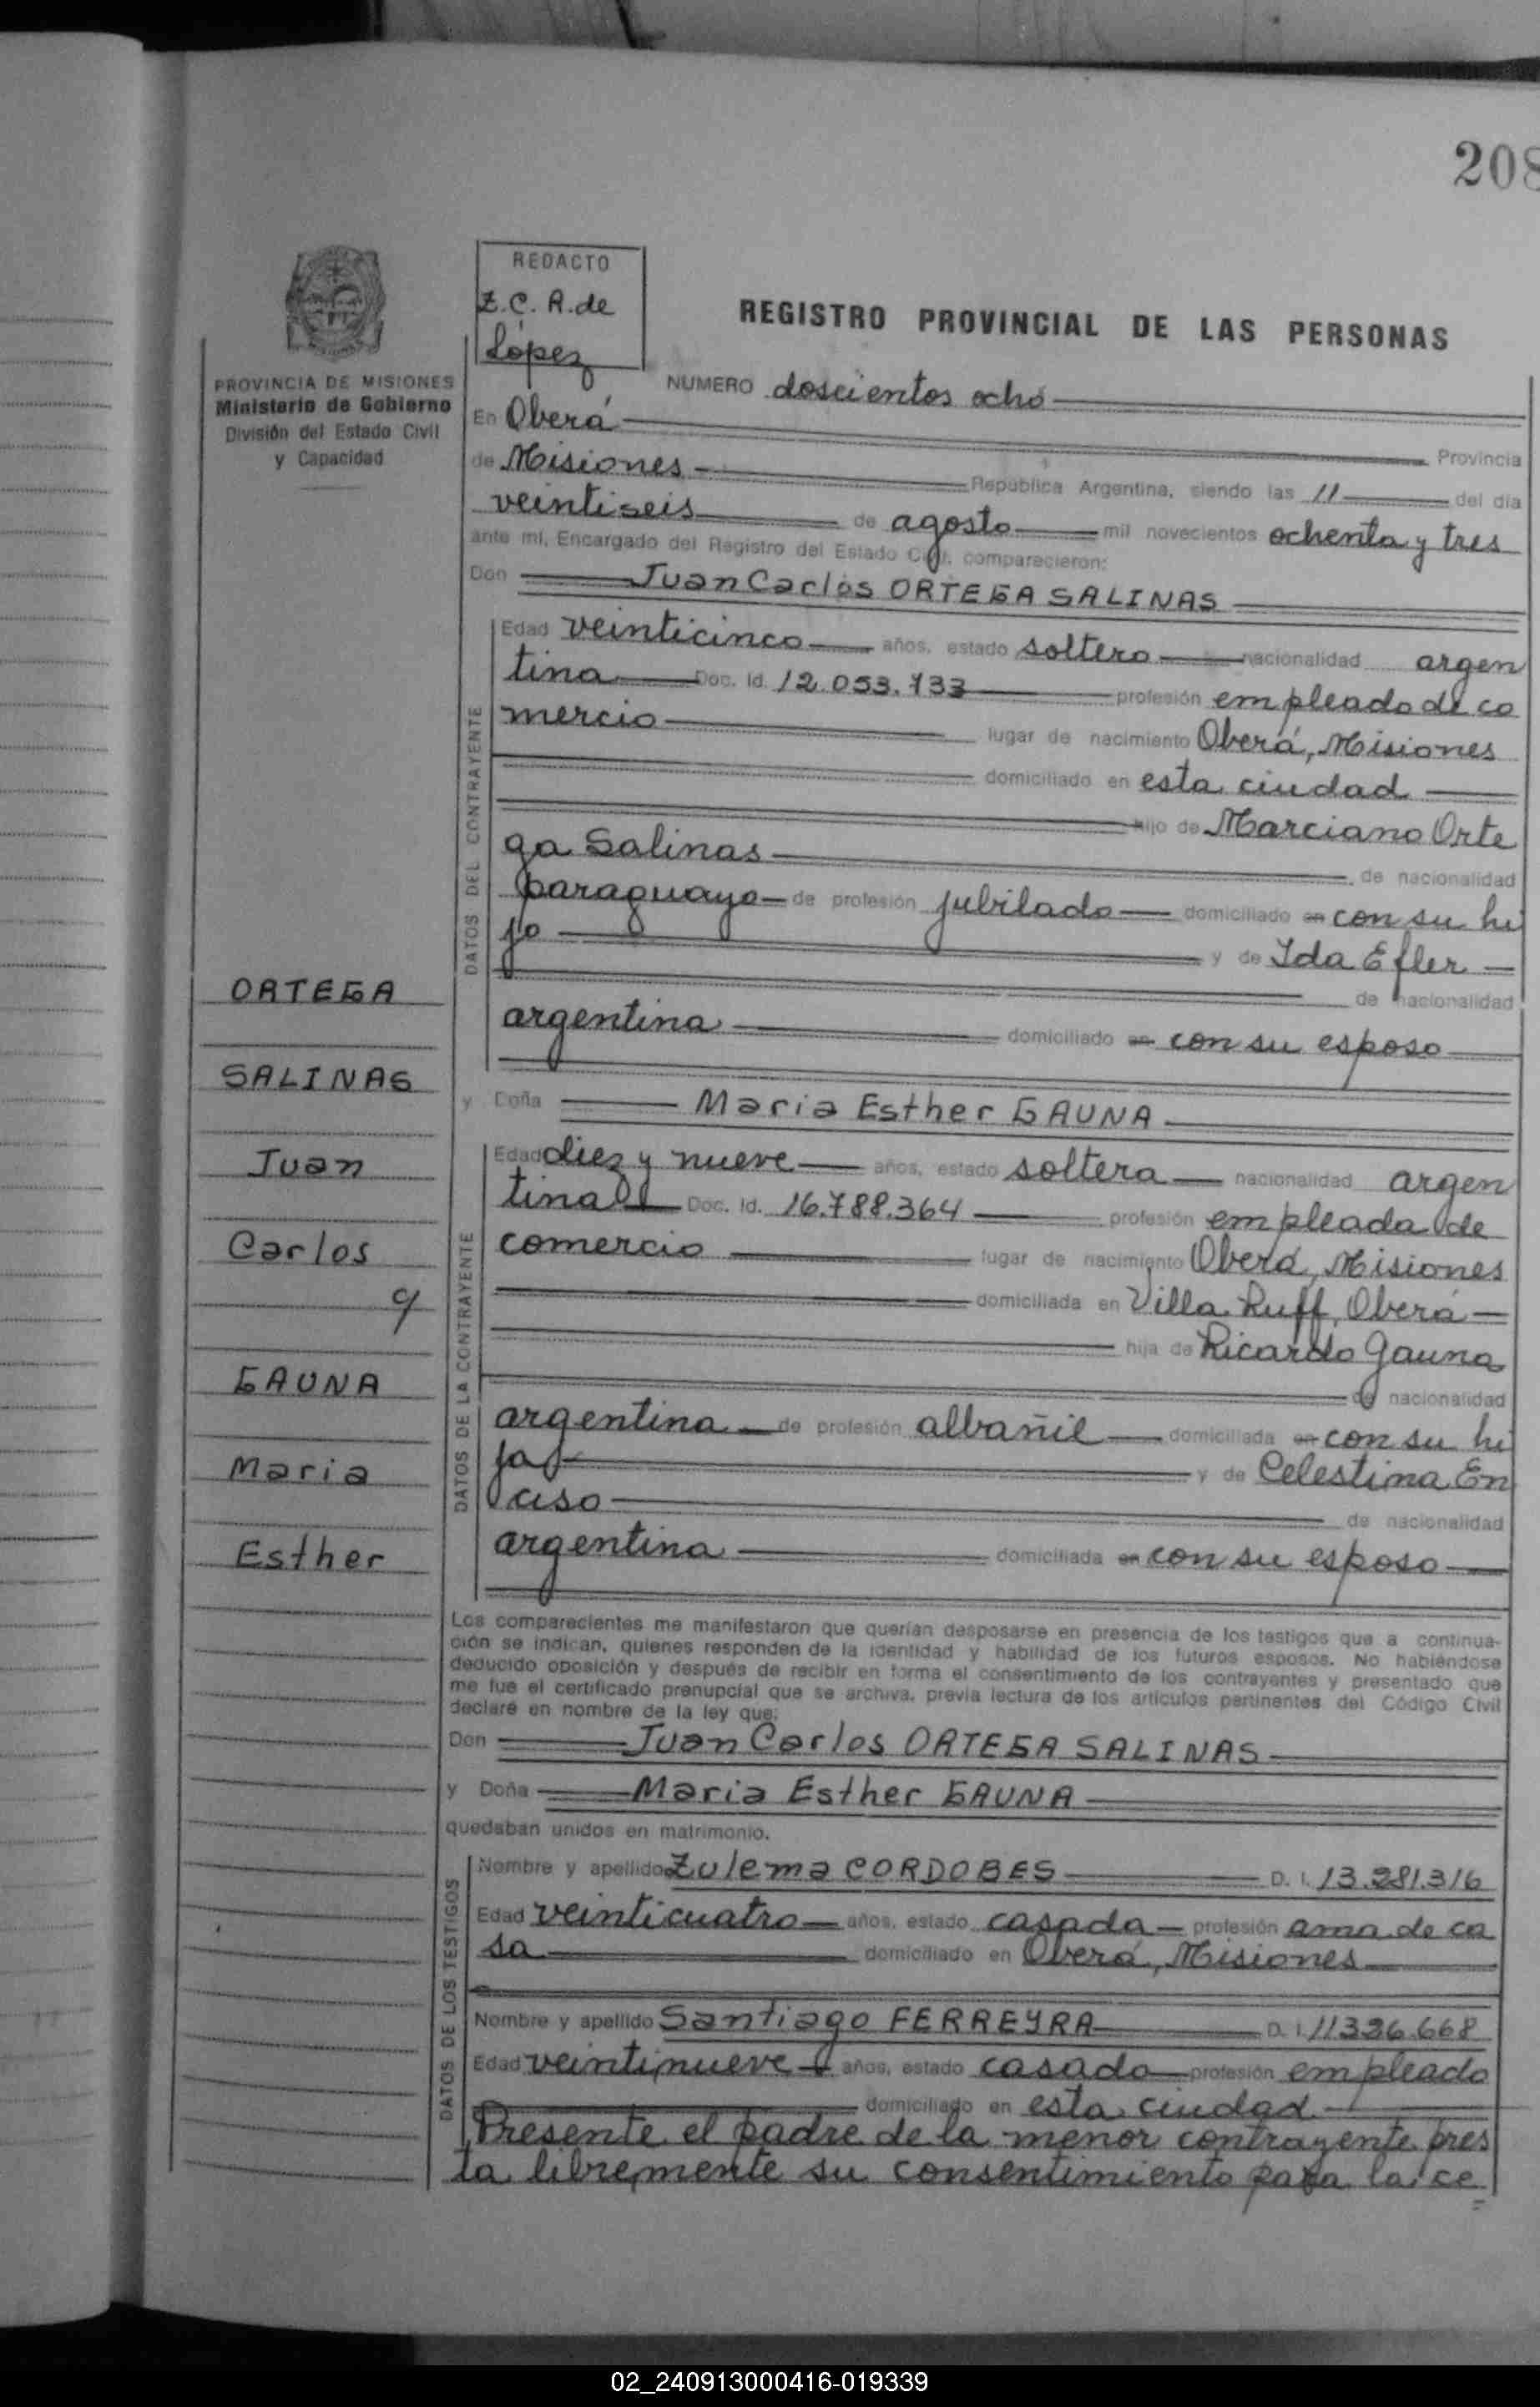 208
REDACTO
Z.C.A. de
López
REGISTRO PROVINCIAL DE LAS PERSONAS
PROVINCIA DE MISIONES
Ministerio de Gobierno
División del Estado Civil
y Capacidad
NUMERO doscientos ocho
En Oberá
Provincia
de Misiones República Argentina, siendo las 11 del día
veintiseis de agosto mil novecientos ochenta y tres
ante mí, Encargado del Registro del Estado Civil, comparecieron:
Don Juan Carlos ORTEGA SALINAS
DATOS DEL CONTRAYENTE
Edad veinticinco años, estado soltero nacionalidad argen
tina Doc. Id. 12.053.733 profesión empleado de co
mercio lugar de nacimiento Oberá, Misiones
domiciliado en esta ciudad
hijo de Marciano Orte
ga Salinas de nacionalidad
paraguayo de profesión jubilado domiciliado en con su hi
jo y de Ida Efler
de nacionalidad
argentina domiciliado en con su esposo
y Doña Maria Esther GAUNA
DATOS DE LA CONTRAYENTE
Edad diez y nueve años, estado soltera nacionalidad argen
tina Doc. Id. 16.788.364 profesión empleada de
comercio lugar de nacimiento Oberá, Misiones
domiciliada en Villa Ruff, Oberá
hija de Ricardo Gauna
de nacionalidad
argentina de profesión albañil domiciliada en con su hi
ja y de Celestina En
ciso de nacionalidad
argentina domiciliada en con su esposo
ORTEGA
SALINAS
Juan
Carlos
y
GAUNA
Maria
Esther
Los comparecientes me manifestaron que querían desposarse en presencia de los testigos que a continua-
ción se indican, quienes responden de la identidad y habilidad de los futuros esposos. No habiéndose
deducido oposición y después de recibir en forma el consentimiento de los contrayentes y presentado que
me fue el certificado prenupcial que se archiva, previa lectura de los artículos pertinentes del Código Civil
declaré en nombre de la ley que:
Don Juan Carlos ORTEGA SALINAS
y Doña Maria Esther GAUNA
quedaban unidos en matrimonio.
DATOS DE LOS TESTIGOS
Nombre y apellido Zulema CORDOBES D. I. 13.281.316
Edad veinticuatro años, estado casada profesión ama de ca
sa domiciliado en Oberá, Misiones
Nombre y apellido Santiago FERREYRA D. I. 11336.668
Edad veintinueve años, estado casado profesión empleado
domiciliado en esta ciudad
Presente el padre de la menor contrayente pres
ta libremente su consentimiento para la ce
02_240913000416-019339